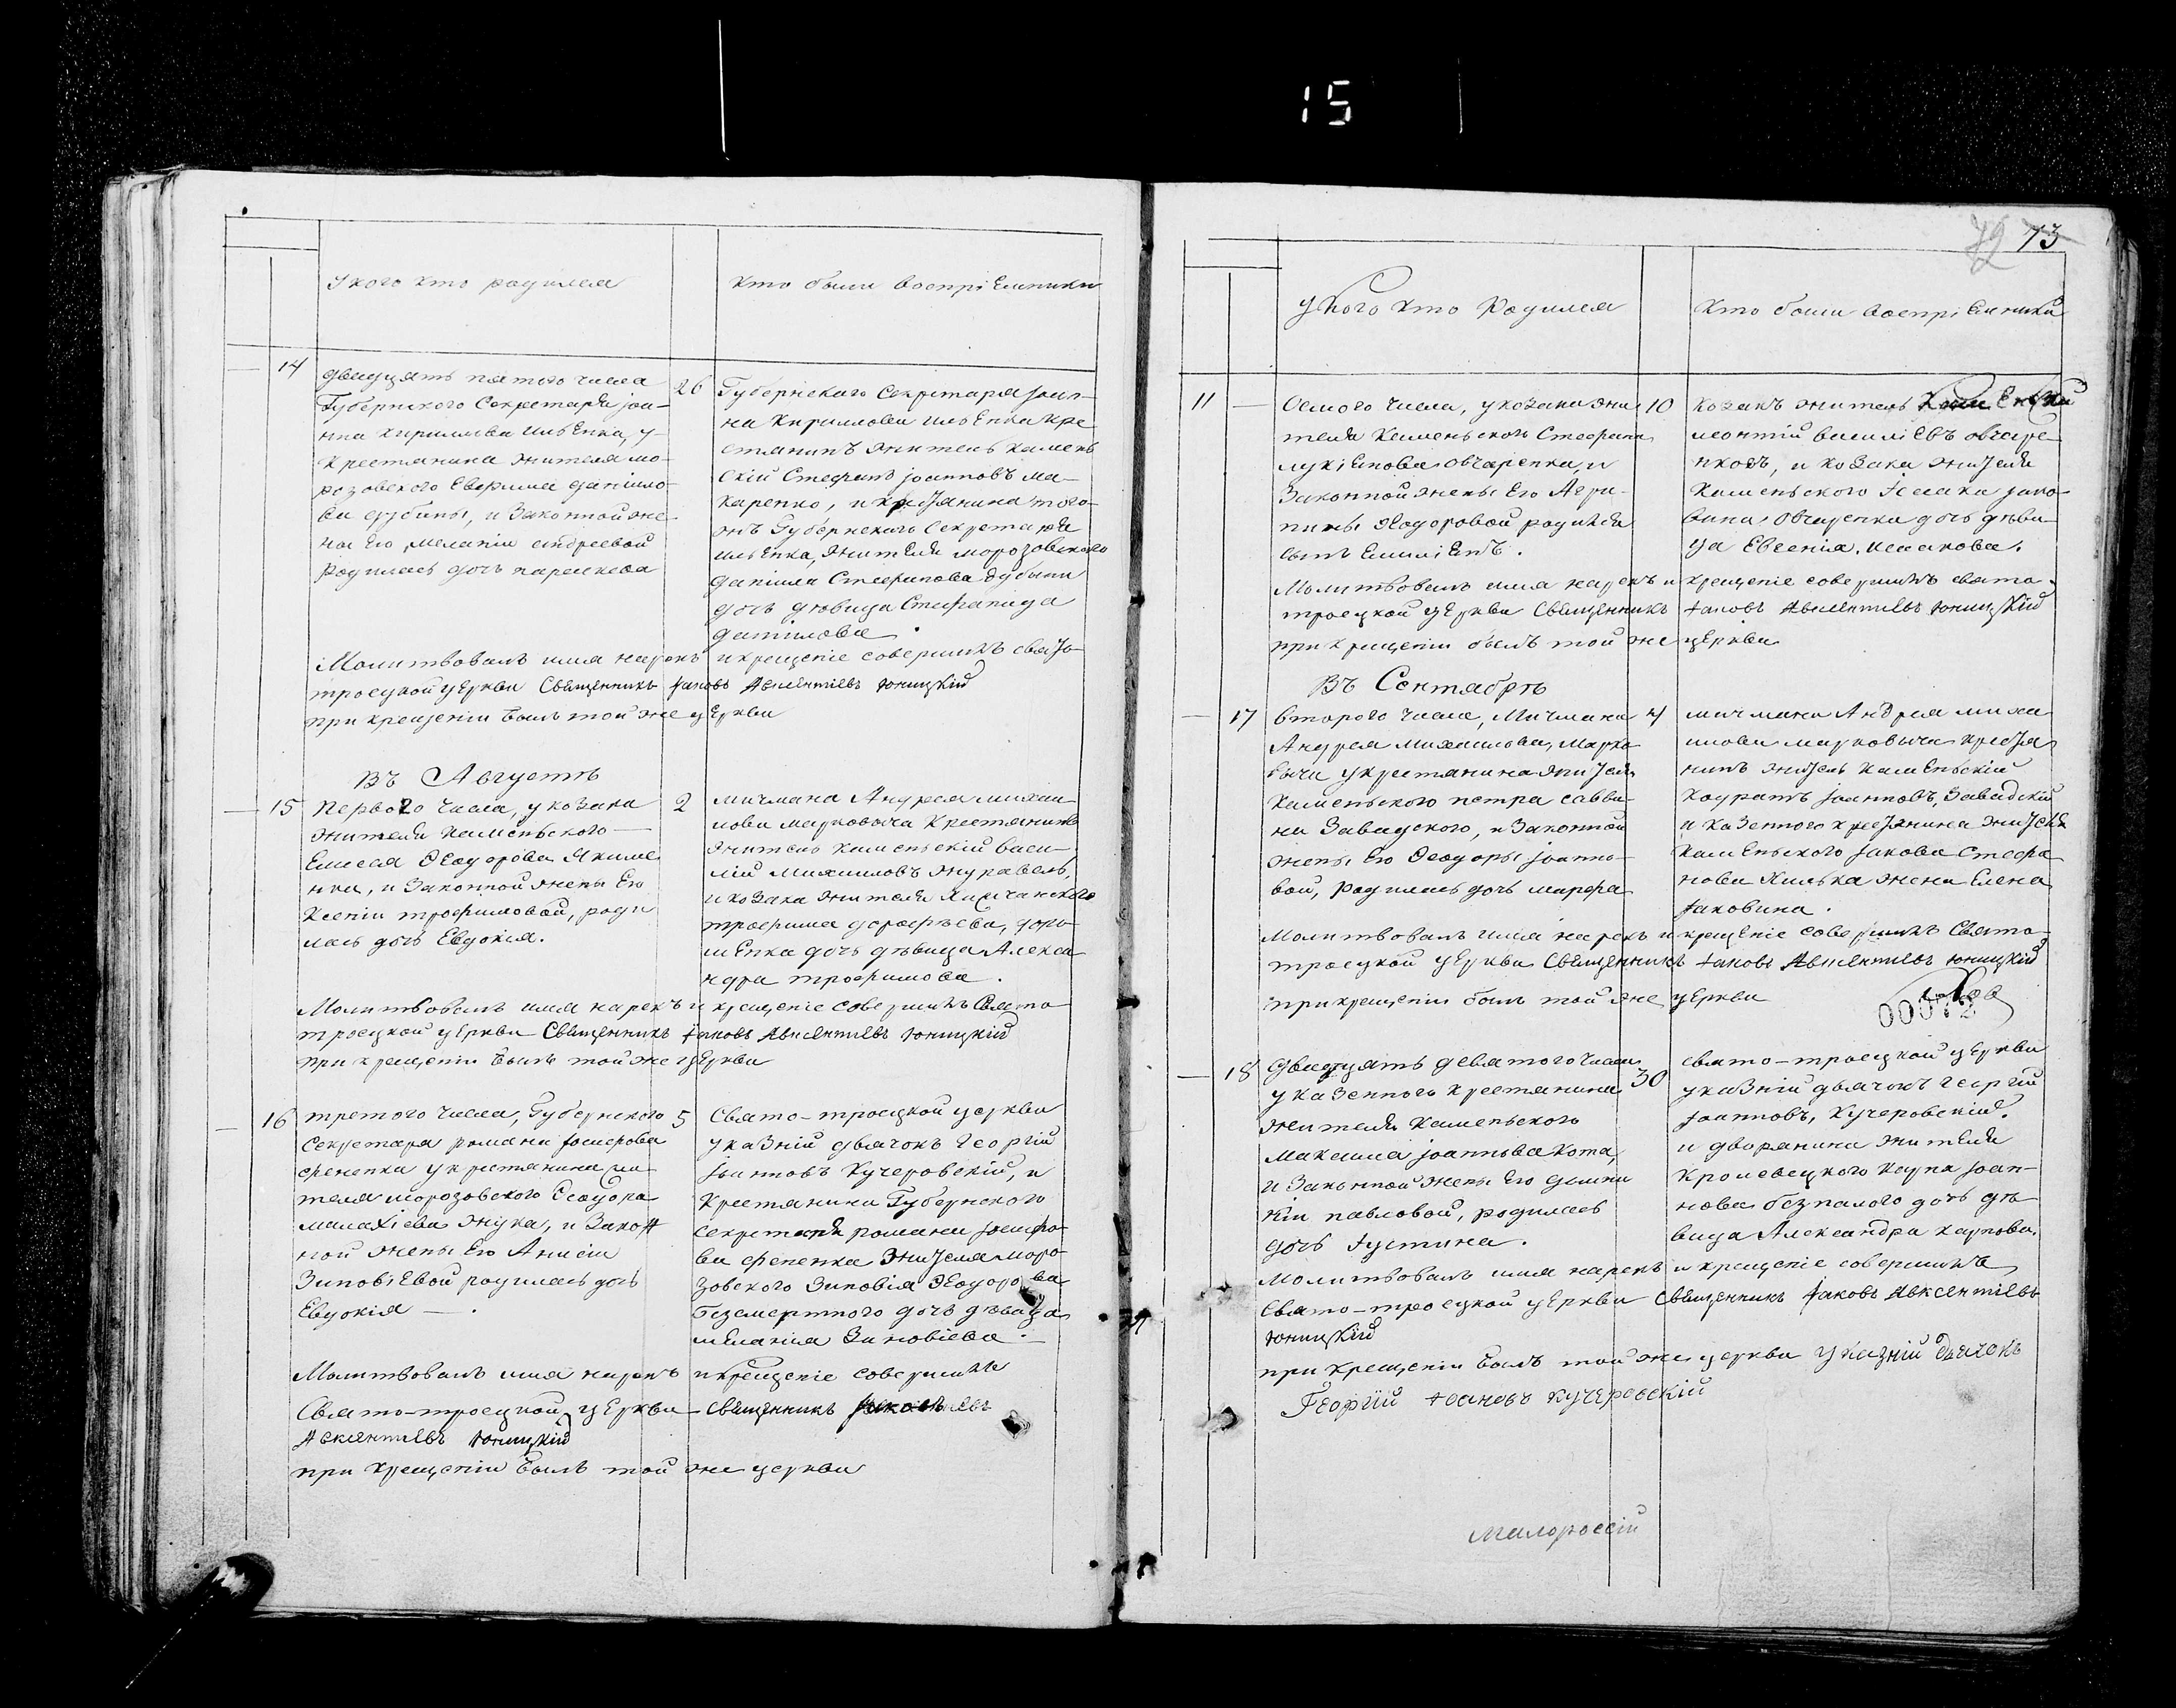 15
72 73
У кого кто родился
Кто были воспріемники
14
двацять пятого числа
Губернского Секретаря іоа-
нна кирилова ильенка, у
крестянина жителя мо-
розовского Евфима даніло-
ва дубины, и Законной же-
ны Его меланіи андреевой
родилась дочь параскева
26
Губернскаго Секретаря іоан-
на Кирилова ильЕнка кре
стянинъ житель камень
скій Стефанъ іоанновъ ма-
каренко, и крестянина того-
жъ Губернскаго Секретаря
ильЕнка, жителя морозовского
даніила Стефанова дубыны
дочь дѣвица Стефанида
данілова
Молитвовалъ имя нарекъ и крещеніе совершилъ свято-
троецкой церкви Священникъ Іаковъ Авксентіевъ Юницкій
при крещеніи былъ той же церкви
Въ Августѣ
15
первого числа, у козака
жителя Каменьского
Елисея Ѳеодорова Якиме
нка, и Законной жены Его
Ксеніи трофимовой, роди
лась дочь Евдокія.
2
мичмана Андрея михаи-
лова марковыча Крестянинъ
житель каменьскій васи-
лій Михаиловъ журавель,
и козака жителя
трофима дорофѣева, доро-
шЕнка дочь дѣвица Алекса
ндра трофимова.
Молитвовалъ имя нарекъ и крещеніе совершилъ Свято
троецкой церкви Священникъ Іаковъ Авксентіевъ Юницкій
при крещеніи былъ той же церкви
16
третого числа, Губернского
Секретаря романа іосифова
фененка у крестянина жи
теля морозовского Ѳеодора
малахіева жука, и Закон
ной жены Его Анисіи
ЗиновіЕвой родилась дочь
Евдокія
5
Свято-троецкой церкви
указній дьячокъ Георгій
Іоанновъ Кучеровскій, и
Крестянина Губернского
Секретаря романа іосифо-
ва фененка жителя моро
зовского Зиновія Ѳеодорова
безсмертного дочь дѣвица
меланія Зиновіева.
Молитвовалъ имя нарекъ и крещеніе совершилъ
Свято-троецкой церкви Священникъ
Авксентіевъ Юницкій
при крещеніи былъ той же церкви
У Кого кто Родился
Кто были воспріемники
11
Осмого числа, у козака жи
теля Каменьского Стефана
лукіянова овчаренка, и
Законной жены Его Агри-
пины Ѳеодоровой родился
сынъ ЕмиліЕнъ.
10
козакъ житель
леонтій василіЕвъ овчаре-
нковъ, и козака жителя
Каменьского Исаака
овчаренка дочь дѣви-
ца Евгенія. исаакова.
Молитвовалъ имя нарекъ и крещеніе совершилъ свято-
троецкой церкви Священникъ Іаковъ Авксентіевъ Юницкій
при крещеніи былъ той же церкви
Въ Сентябрѣ
17
Второго числа, Мичмана
Андрея Михаилова, Марко
выча у крестянина жителя
каменьского петра савви-
на Завадского, и Законной
жены Его Ѳеодоры іоанно-
вой, родилась дочь марфа
4
мичмана Андрея миха
илова марковыча крестя
нинъ житель камЕнскій
кодратъ іоанновъ, Завадскій
и казенного крестянина жителя
камЕньского Іакова стефа
нова Хилька жена Елена
Іаковина.
Молитвовалъ имя нарекъ и крещеніе совершилъ Свято-
троецкой церкви Священникъ Іаковъ Авксентіевъ Юницкій
при крещеніи былъ той же церкви
00072
18
двадцять девятого числа
у казенного крестянина
жителя каменьского
максима іоаннова кота,
и Законной жены Его домни
кіи павловой, родилась
дочь Іустина.
30
свято-троецкой церкви
указній дьячокъ Георгій
Іоанновъ, Кучеровскій.
и дворянина жителя
Кролевецкого Карпа іоан-
нова безпалого дочь дѣ-
вица Александра карпова.
Молитвовалъ имя нарекъ и крещеніе совершилъ
Свято-троецкой церкви Священникъ Іаковъ Авксентіевъ
Юницкій
при крещеніи былъ той же церкви Указній Дьячокъ
Георгій Іоановъ Кучеровскій
малороссій